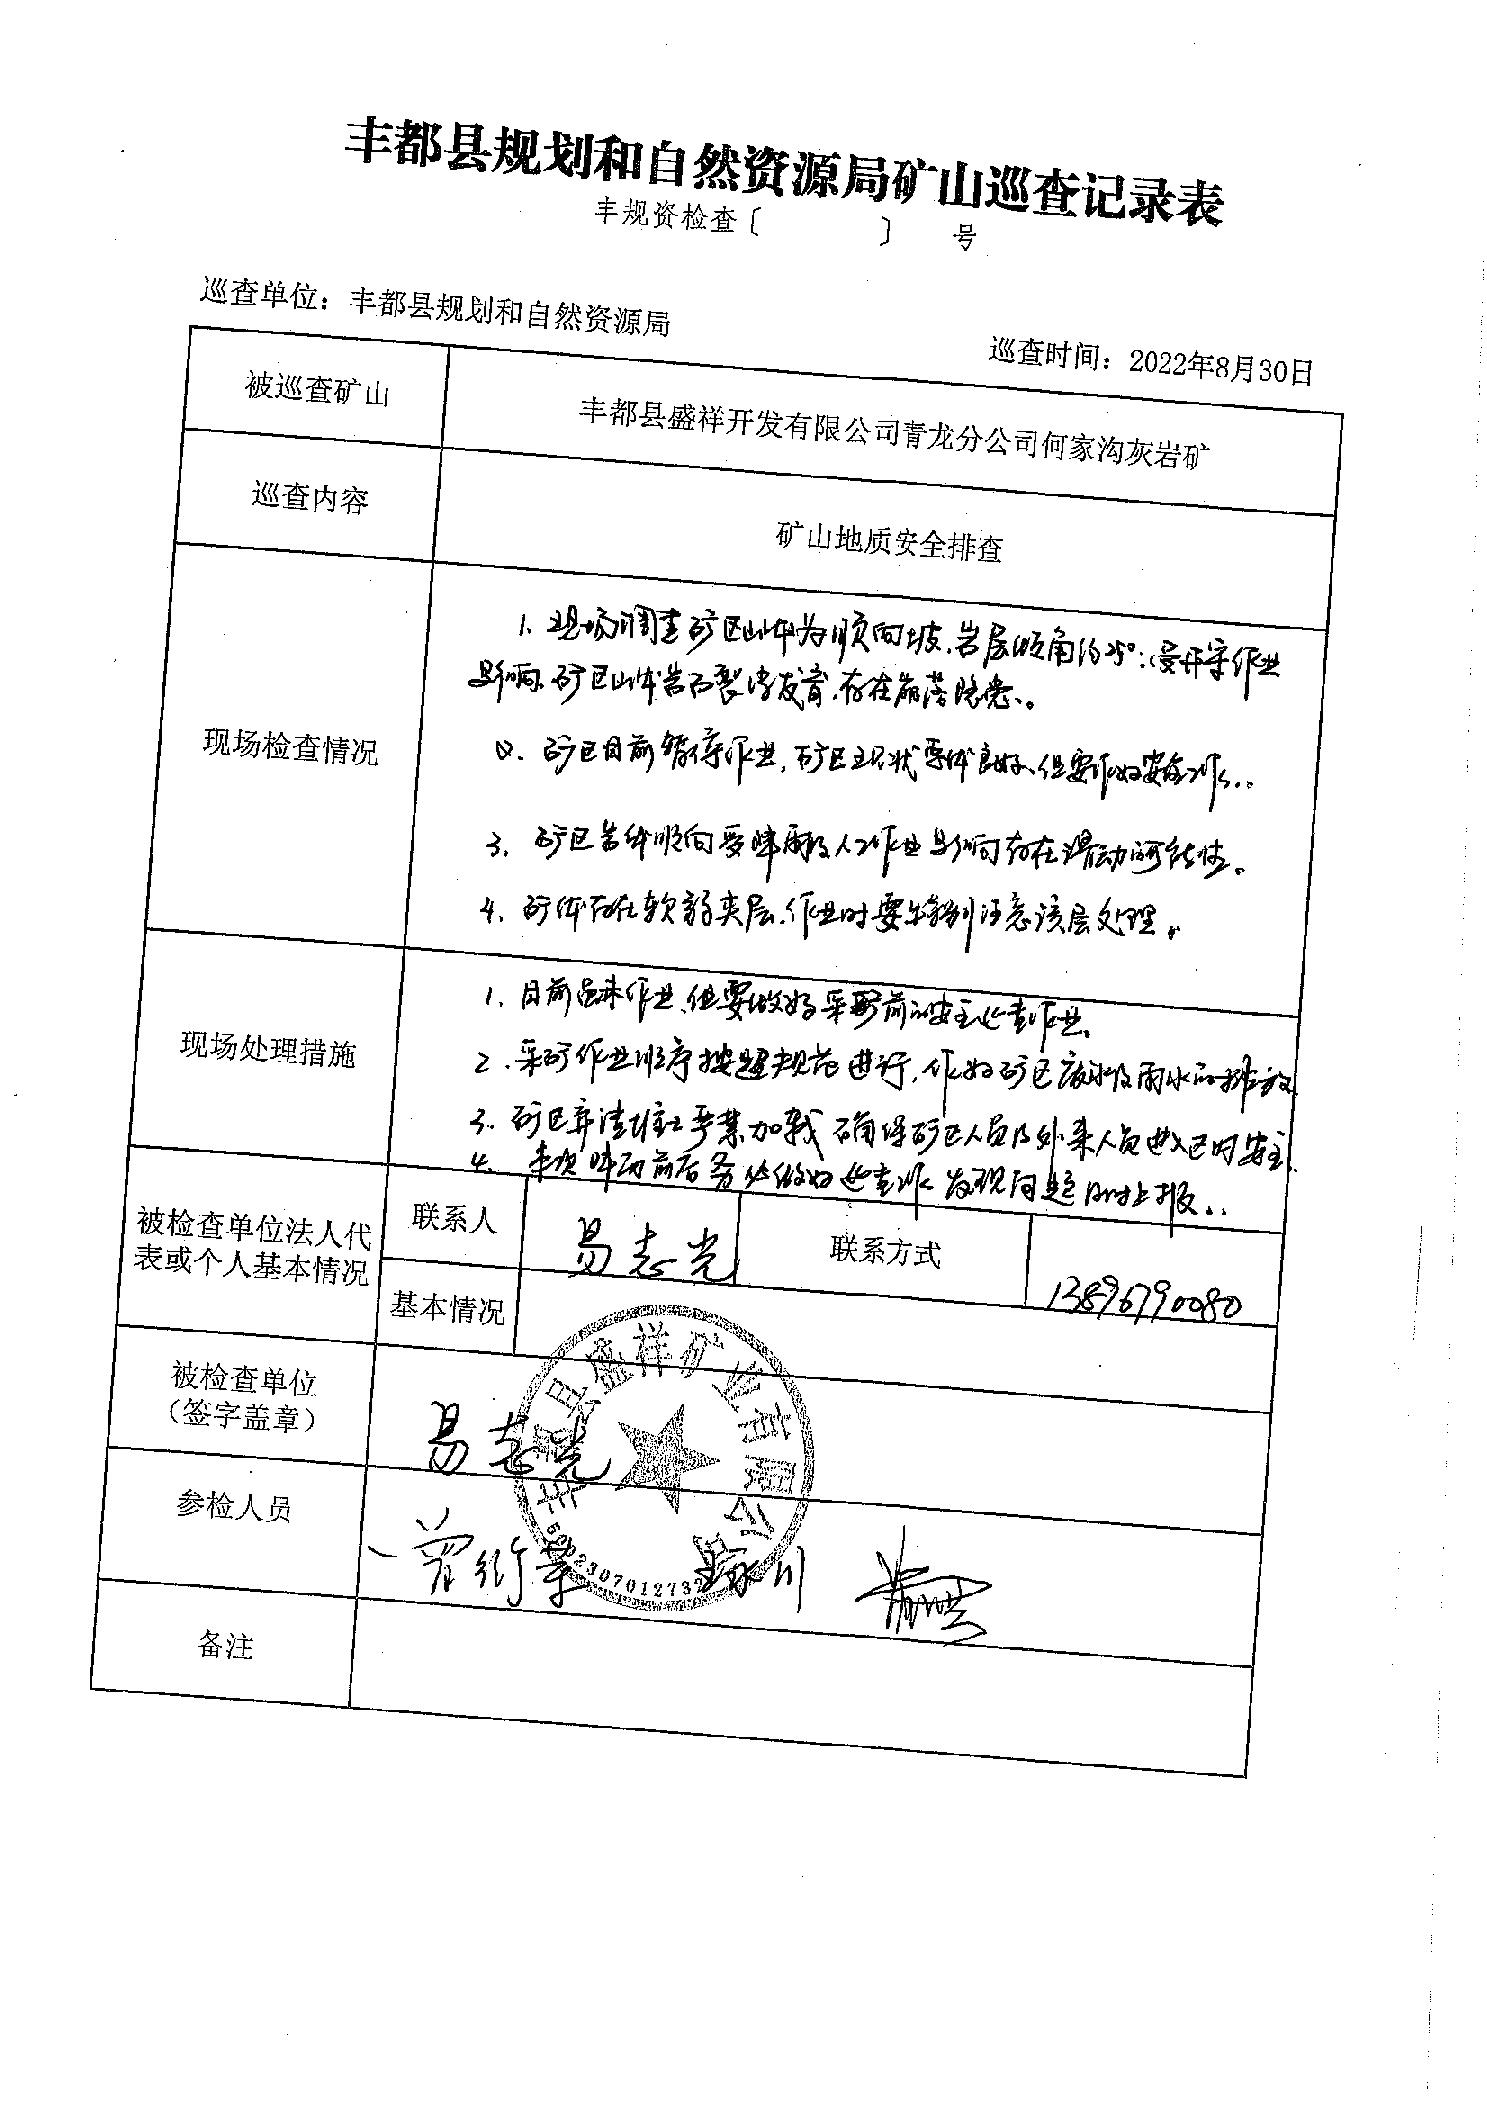 丰都县规划和自然资源局矿山巡查记录表
丰规资检查〔 〕 号
巡查单位：丰都县规划和自然资源局
巡查时间：2022年8月30日
被巡查矿山
丰都县盛祥开发有限公司青龙分公司何家沟灰岩矿
巡查内容
矿山地质安全排查
现场检查情况
1. 现场调查矿区山体为顺向坡，岩层倾角约25°；受开采作业
影响，矿区山体岩石裂隙发育，存在崩落隐患。
2. 矿区目前暂停作业，矿区现状整体良好，但要作好安全工作。
3. 矿区岩体顺向受降雨及人工作业影响存在滑动的可能性。
4. 矿体存在软弱夹层，作业时要特别注意该层处理。
现场处理措施
1. 目前虽未作业，但要做好采矿前的安全检查作业。
2. 采矿作业顺序按规范进行，作好矿区废水及雨水的排放
3. 矿区弃渣堆土严禁加载 确保矿区人员及外来人员进入区内安全
4. 降雨前后务必做好巡查工作 发现问题及时上报。
被检查单位法人代
表或个人基本情况
联系人
易志光
联系方式
13896790080
基本情况
被检查单位
（签字盖章）
易志光
丰都县盛祥矿业有限公司
参检人员
备注